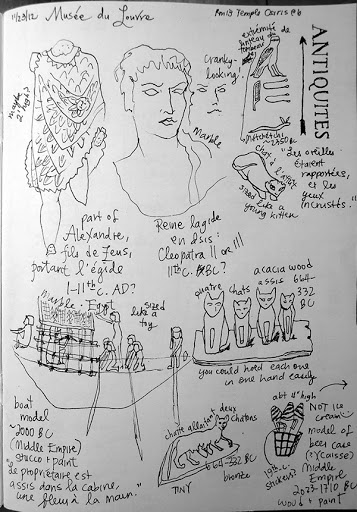 11/23/12 Musée du Louvre
ANTIQUITÉS
extrémité de
linteau de
Cranky-
looking!
marble
2' high?
Marble
Chat à l'affût
sized like a
young kitten
"Les oreilles
étaient
rapportées,
et les
yeux
incrustés."
part of
Alexandre,
fils de Zeus,
portant l'égide
I-II th c. AD?
marble. Egypt
Reine lagide
en Isis:
Cleopatra II or III
II th c. BC?
sized
like a
toy
quatre chats
assis
acacia wood
664-
332
BC
you could hold each one
in one hand easily
boat
model
~2000 BC
(Middle Empire)
stucco + paint
"Le propriétaire est
assis dans la cabine,
une fleur à la main."
chatte allaitant deux
chatons
664-332 BC
bronze
TINY
abt 4" high
NOT ice
cream
model of
beer case
(caisse)
Middle
Empire
2033-1710 BC
wood + paint
19th c.
stickers?